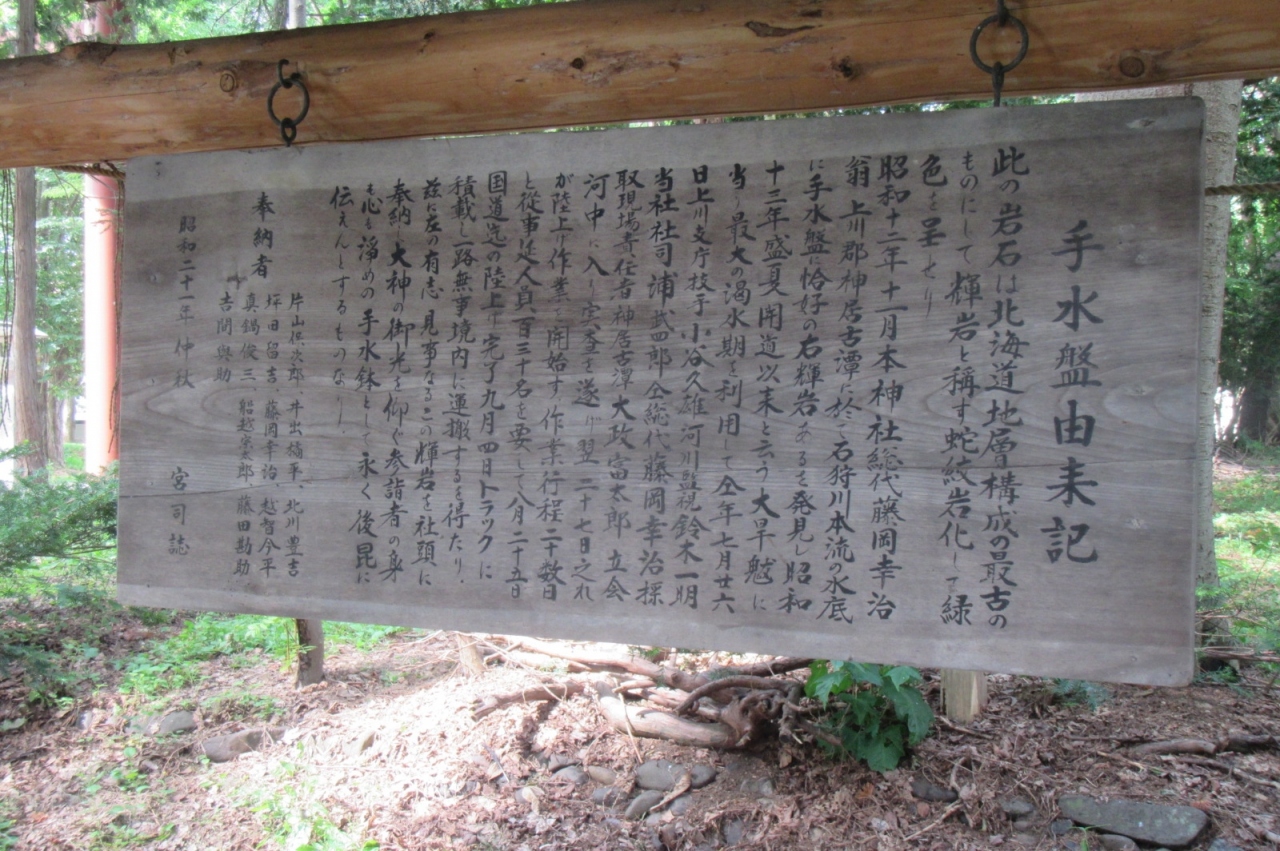 手水盤由来記
此の岩石は北海道地層構成の最古の
ものにして輝岩と稱す蛇紋岩化して緑
色を呈せり
昭和十二年十一月本神社総代藤岡幸治
翁上川郡神居古潭に於て石狩川本流の水底
に手水盤に恰好の右輝岩あるを発見し昭和
十三年盛夏開道以来と云う大旱魃に
当り最大の渇水期を利用して仝年七月廿六
日上川支庁技手小谷久雄河川監視鈴木一明
当社社司浦武四郎仝総代藤岡幸治採
取現場責任者神居古潭大政富太郎立会
河中に入り実査を遂げ翌二十七日之れ
が陸上げ作業を開始す作業行程二十数日
と従事延人員百三十名を要して八月二十五日
国道迄の陸上げ完了九月四日トラックに
積載し一路無事境内に運搬するを得たり.
茲に左の有志見事なる此の輝岩を社頭に
奉納し大神の御光を仰ぐ参詣者の身
も心も浄めの手水鉢として永く後昆に
伝えんとするものなり.
奉納者
片山保次郎、井出橘平、北川豊吉
坪田留吉、藤岡幸治、越智今平
真鍋俊三、船越栄太郎、藤田勘助
吉間與助
昭和二十一年仲秋
宮司誌